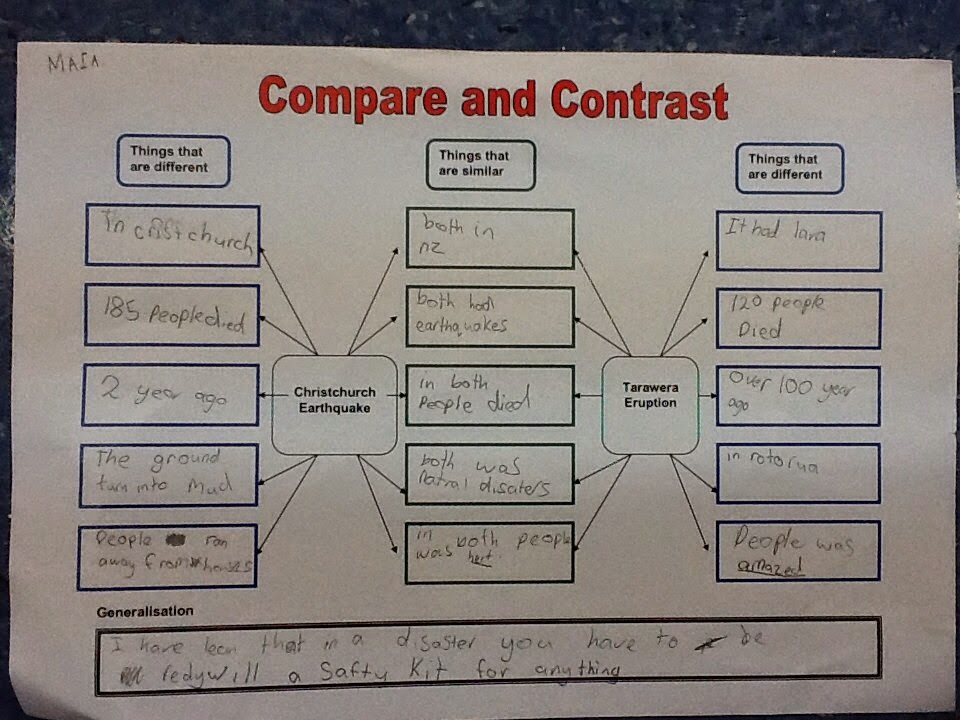 MAIA
Compare and Contrast
Things that
are different
Things that
are similar
Things that
are different
In cristchurch
185 People died
2 year ago
The ground
turn into Mud
People ran
away from houses
Christchurch
Earthquake
booth in
nz
both had
earthquakes
in both
People died
both was
natral disaters
in both people
was hert
Tarawera
Eruption
It had lava
120 people
Died
Over 100 year
ago
in rotorua
People was
amazed
Generalisation
I have lean that in a disaster you have to be
redy will a Safty Kit for anything